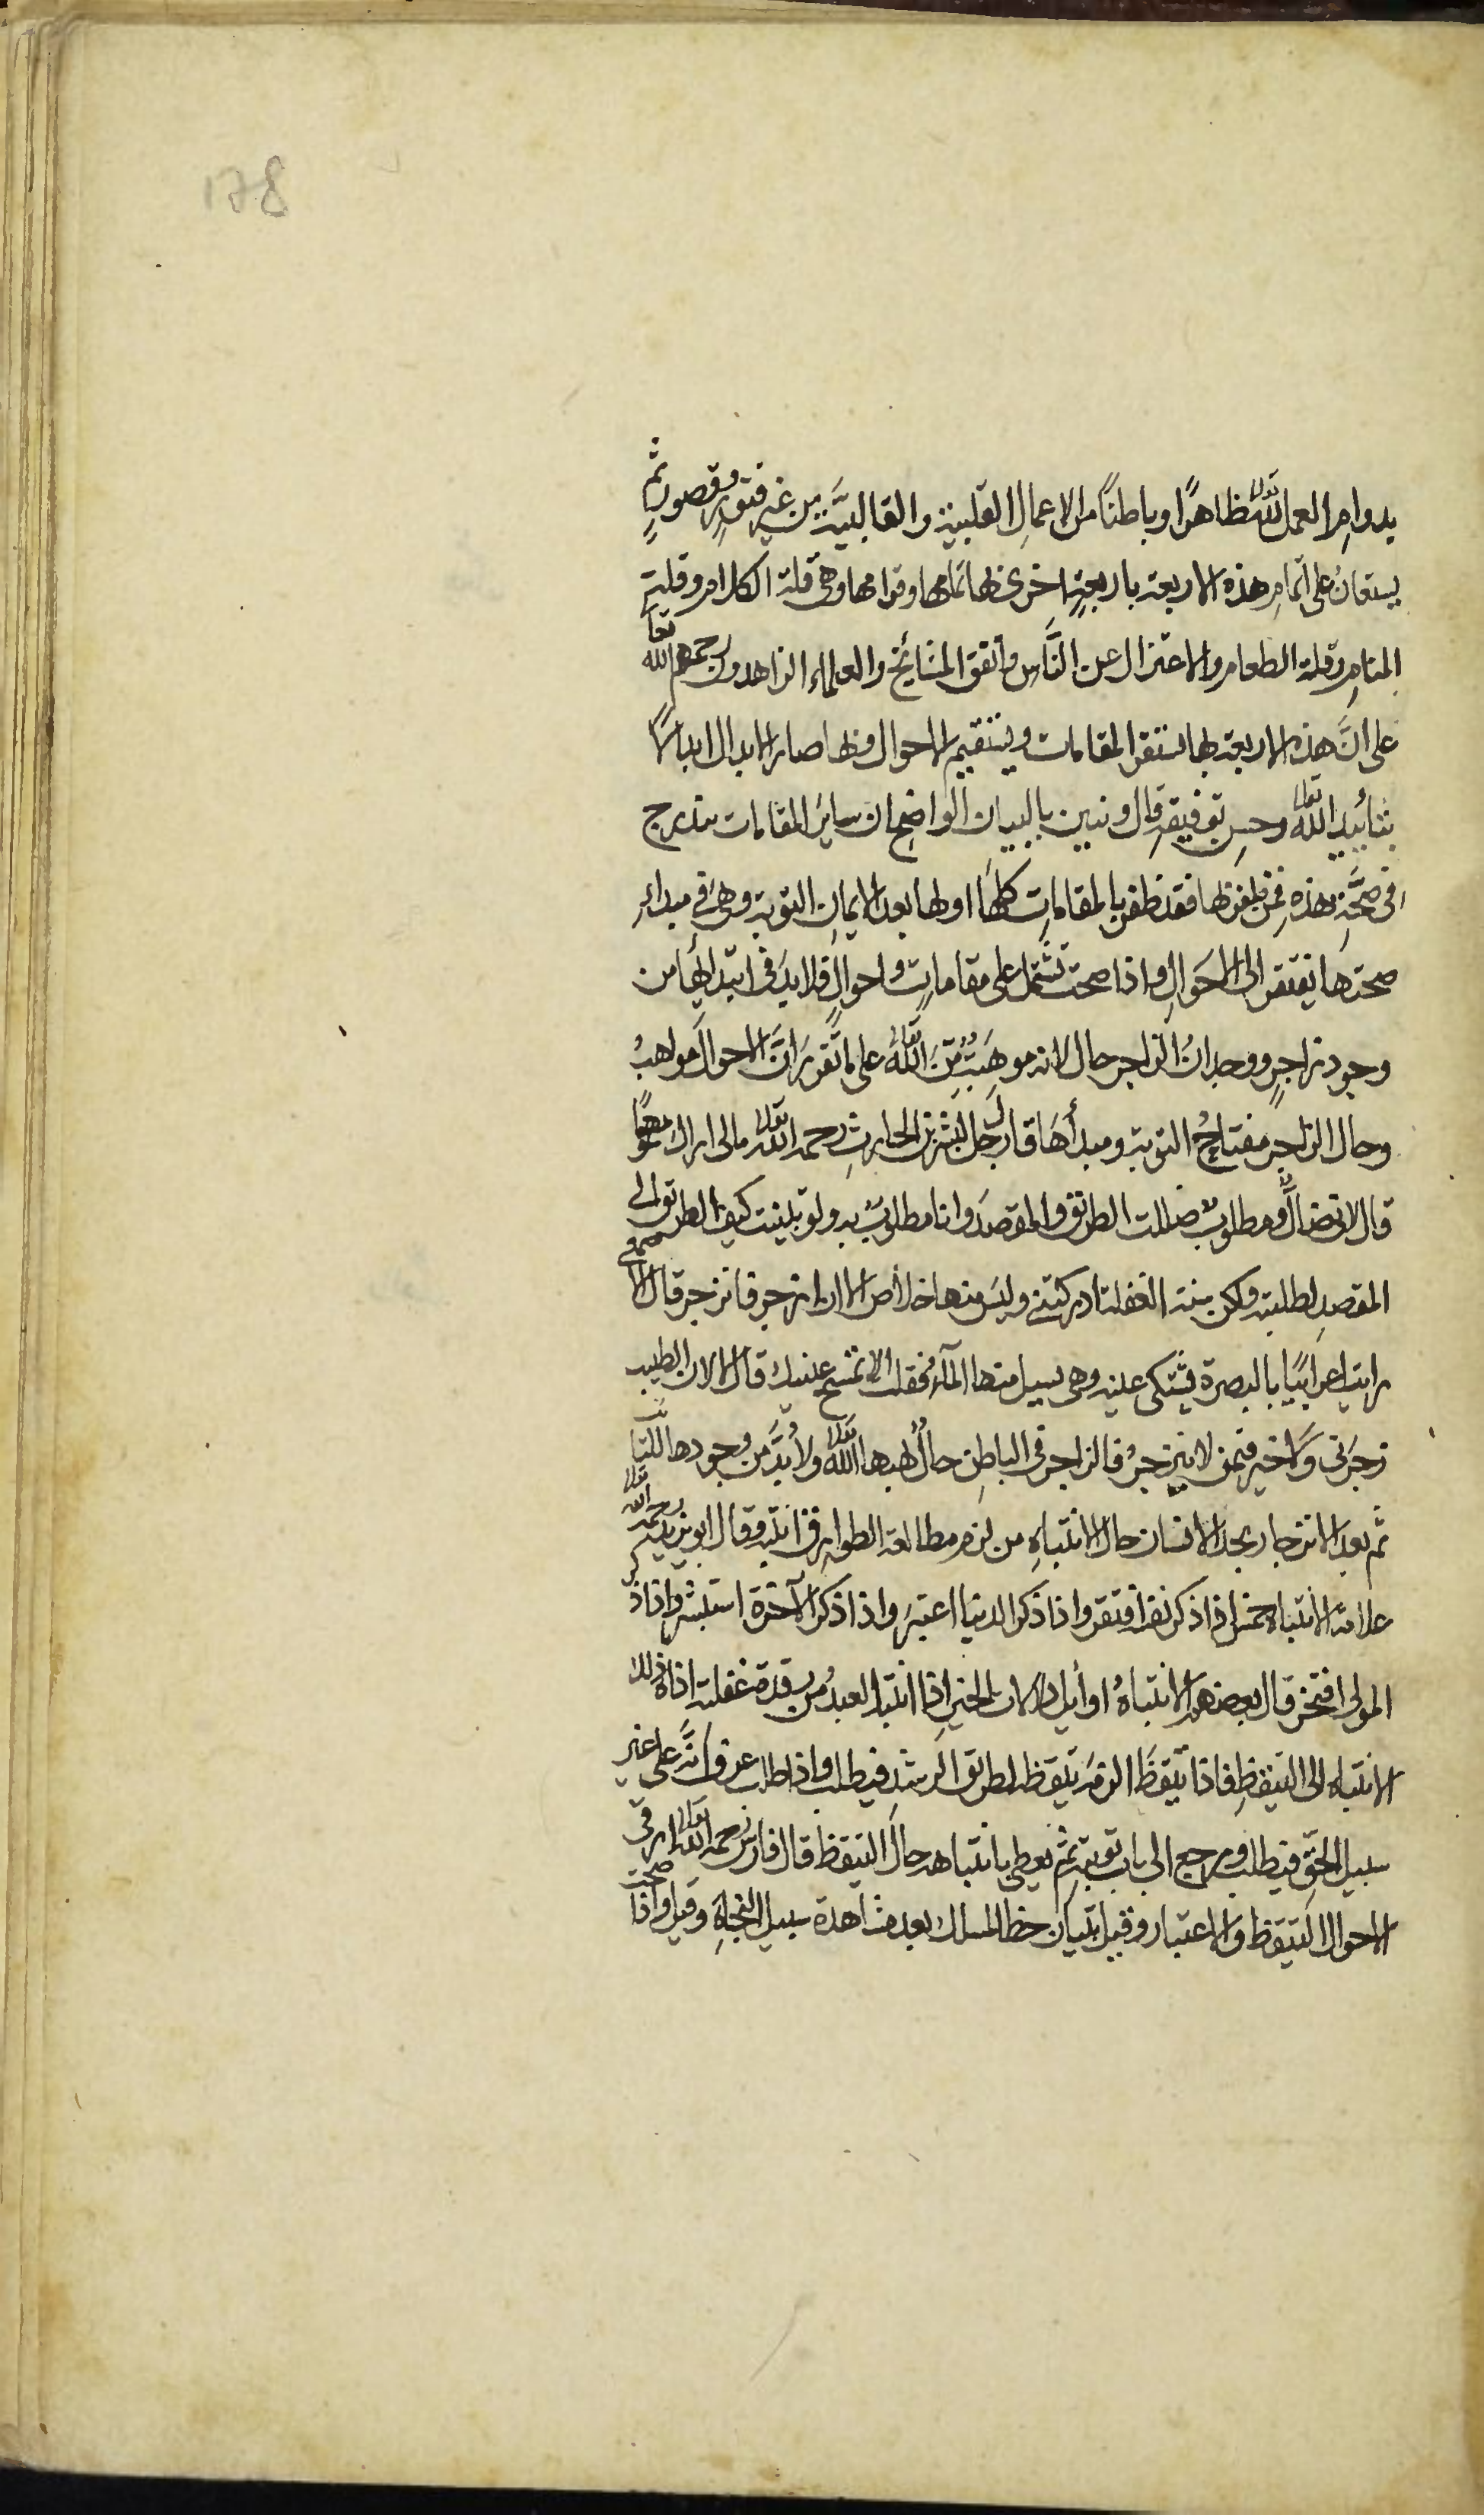 178
بدوام العمل لله تعالى ظاهرًا وباطنًا من الاعمالِ القلبية والقالبيَّة من غير فتورٍ وقصورٍ ثم
يستعانُ على اتمام هذه الاربعة باربعةٍ اخرى بها تمامها وقوامها وهى قلة الكلام وقلة
المنام وقلة الطعام والاعتزال عن النَّاسِ واتفق المشائخ والعلماء الزاهدون رحمهم الله تعا
على انَّ هذه الاربعة بها تستقر المقامات ويستقيم الاحوال وبها صار الابدال ابدالًا
بتأييد الله تعالى وحسن توفيقهِ قال ونبين بالبيان الواضح ان ساير المقامات تندرج
فى صحَّة هذه فمن ظفر بها فقد ظفر بالمقاماتِ كلها اولها بعد الايمان التوبة وهى فى مبداء
صحتها تفتقر الى الاحوال واذا صحت تشتمل على مقاماتٍ واحوالٍ فلا بد فى ابتدائها من
وجود زاجرٍ ووجدانُ الزاجر حال لانه موهبَةٌ منَ الله تعالى على ما تقرر انَّ الاحوالَ مواهبُ
وحال الزاجر مفتاحُ التوبة ومبدأها قال رجل لبشر بن الحارثِ رحمه الله تعالى مالى اراك مهمومًا
قال لانى ضالٌّ ومطلوبٌ ضللت الطريق والمقصدَ وانا مطلوبٌ به ولو تبينت كيف الطريق الى
المقصدِ لطلبته ولكن سنة الغفلة ادركتنى وليس منها خلاص الا ان ازجر فانزجر قال الاصمعى
رايت اعرابيًا بالبصرة يشتكى عينه وهى يسيل منها الماءُ فقلت الا تمسح عينيك قال لا لان الطبيب
زجرَنى وَلا خير فيمن لا ينزجرُ فالزاجر فى الباطنِ حالٌ يهبها الله تعالى ولا بُدَّ من وجودها للتائب
ثم بعد الانزجار يجد الانسان حال الانتباهِ من لزم مطالعة الطوارق انتبه وقال ابو يزيد رحمه الله تعالى
علامة الانتباه خمس اذا ذكر نفسه افتقر واذا ذكر الدنيا اعتبرَ واذا ذكر الآخرة استبشر واذا ذكر
المولى افتخر قال بعضهم الانتباهُ اوائل دلالات الخير اذا انتبه العبدُ من رقدة غفلته اداه ذلك
الانتباه الى التيقظِ فاذا تيقظَ الزمه تيقظه لطريق الرشدِ فيطلب واذا طلب عرف انَّه على غير
سبيل الحقِّ فيطلب ويرجع الى باب توبته ثم يعطى بانتباهه حالَ التيقظ قال فارس رحمه الله تعالى اوفى
الاحوال التيقظ والاعتبار وقيل تبيان خط المسلك بعد مشاهدة سبيل النجاةِ وقيل واذا صحت